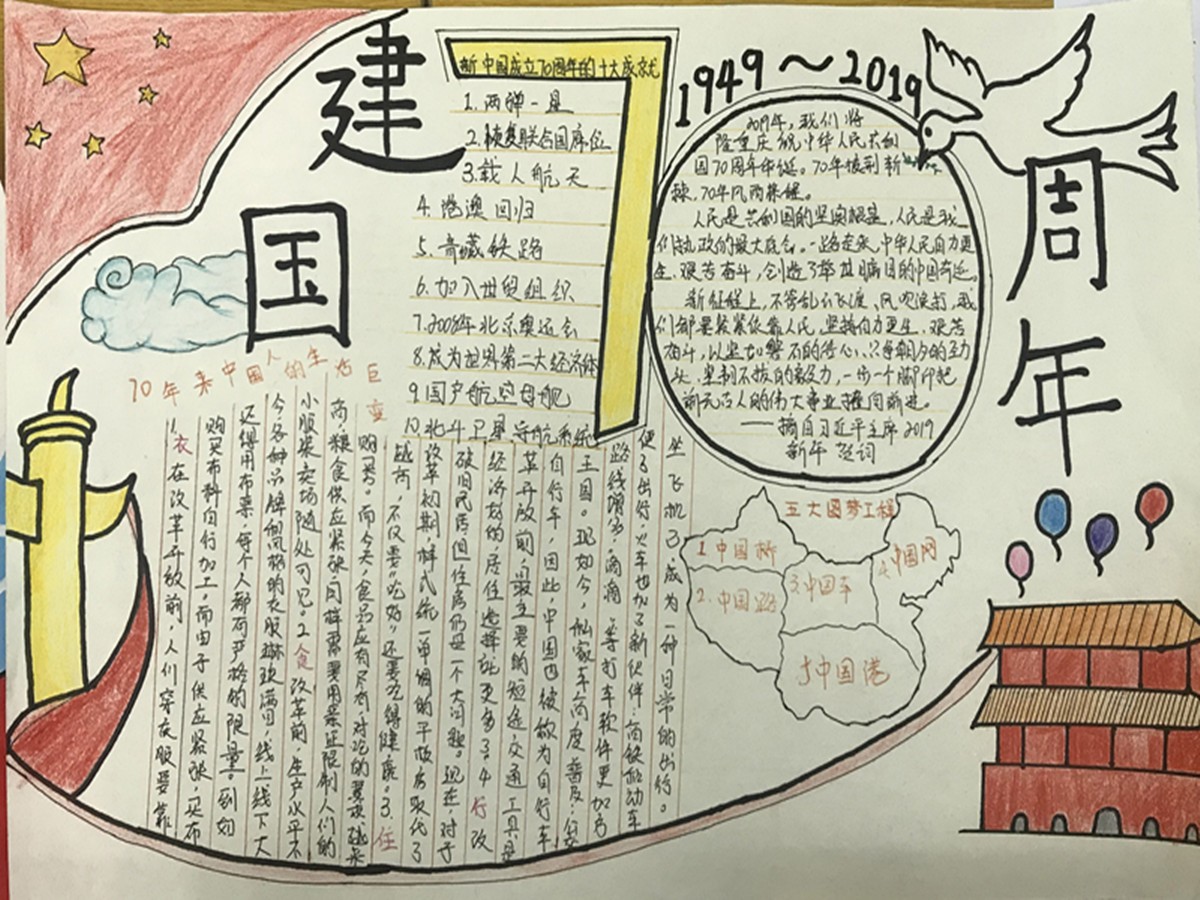 建
国
7
周
年
1949～2019
新中国成立70周年的十大成就
1.两弹一星
2.恢复联合国席位
3.载人航天
4.港澳回归
5.青藏铁路
6.加入世贸组织
7.2008年北京奥运会
8.成为世界第二大经济体
9.国产航空母舰
10.北斗卫星导航系统
2019年,我们将
隆重庆祝中华人民共和
国70周年华诞。70年披荆斩
棘,70年风雨兼程。
人民是共和国的坚实根基,人民是我
们执政的最大底气。一路走来,中华人民自力更
生、艰苦奋斗,创造了举世瞩目的中国奇迹。
新征程上,不管乱云飞渡、风吹浪打,我
们都要紧紧依靠人民,坚持自力更生、艰苦
奋斗,以坚如磐石的信心、只争朝夕的劲
头、坚韧不拔的毅力,一步一个脚印把
前无古人的伟大事业推向前进。
——摘自习近平主席2019
新年贺词
70年来中国人的生活巨变
1.衣 在改革开放前,人们穿衣服要靠
购买布料自行加工,而由于供应紧张,买布
还得用布票,每个人都有严格的限量。到如
今各种品牌和风格的衣服琳琅满目,线上线下大
小服装卖场随处可见。2.食 改革前,生产水平不
高,粮食供应紧张,同样需要用票证限制人们的
购买力。而今天食品应有尽有,对吃的要求越来
越高,不仅要“吃好”还要吃得健康。3.住
改革初期,样式统一单调的平板房取代了
破旧民房,但住房仍是一个大问题。现在,对于
经济好的,居住选择就更多了。4行 改
革开放前,最主要的短途交通工具是
自行车,因此,中国也被称为自行车
王国。现如今,私家车高度普及;公
路线增多,滴滴等打车软件更加方
便了出行,火车也加了新伙伴:高铁和动车
坐飞机已成为一种日常的出行。
五大圆梦工程
1.中国桥
2.中国路
3.中国车
4.中国网
5中国港